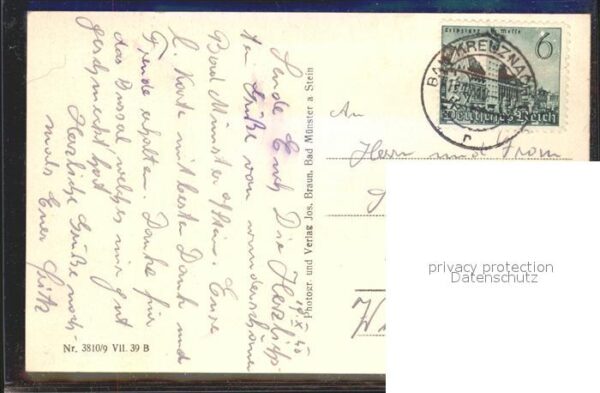 19.X.40
Sende Euch Die Herzlichs-
ten Grüße vom wunderschönen
Bad Münster a/Stein. Eure
l. Karte mit besten Dank und
Freude erhalten. Danke für
das
welches mir gut
geschmeckt hat
Herzliche Grüße noch-
mals Euer Fritz
Nr. 3810/9 VII. 39 B
Photogr. und Verlag Jos. Braun, Bad Münster a Stein
Leipziger Messe
6
Deutsches Reich
BAD KREUZNACH
r
An
Herrn und Frau
privacy protection
Datenschutz